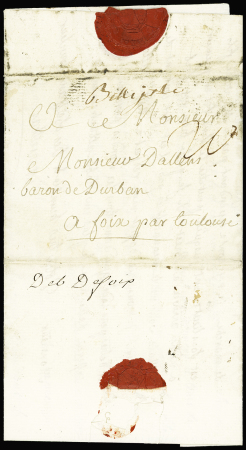 A Monsieur
Monsieur Dallens
baron de Durban
a foix par toulouse
Deb De foix